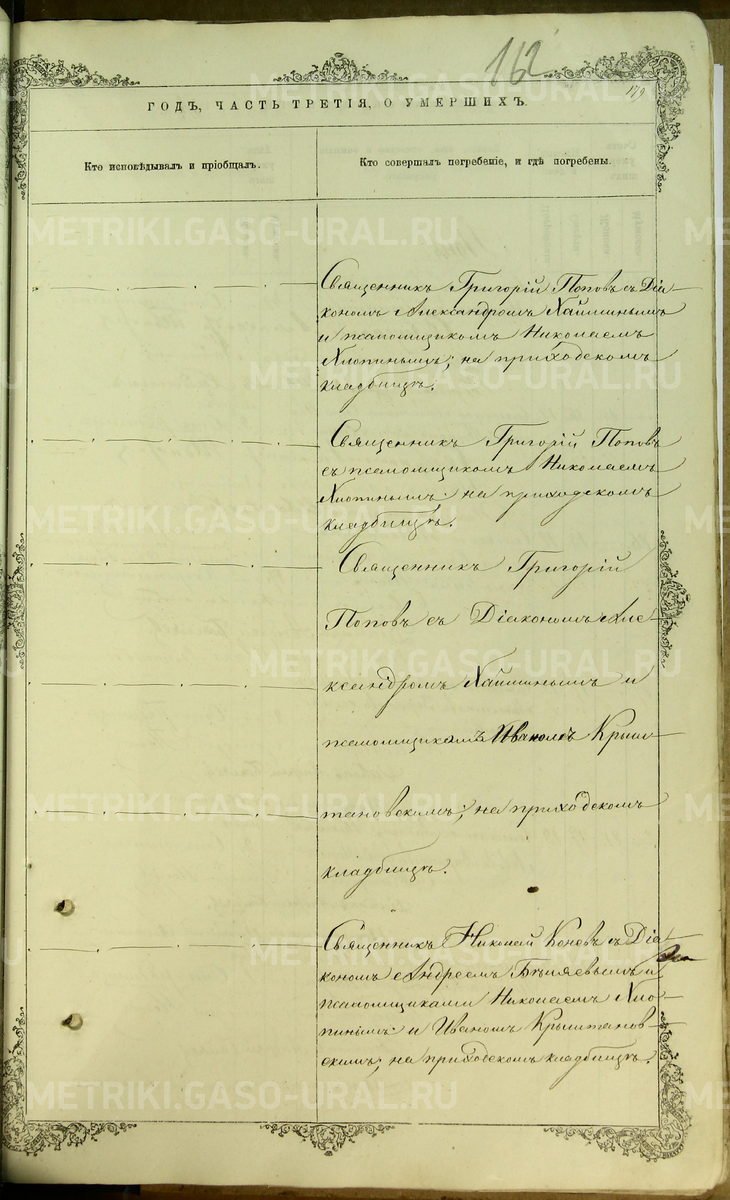 162
179
ГОДЪ, ЧАСТЬ ТРЕТІЯ, О УМЕРШИХЪ.
Кто исповѣдывалъ и пріобщалъ.
Кто совершалъ погребеніе, и гдѣ погребены.
Священникъ Григорій Поповъ съ Діа-
кономъ Александромъ Хайминымъ
и псаломщикомъ Николаемъ
Хлопинымъ; на приходскомъ
кладбищѣ.
Священникъ Григорій Поповъ
съ псаломщикомъ Николаемъ
Хлопинымъ на приходскомъ
кладбищѣ.
Священникъ Григорій
Поповъ съ Діакономъ Але-
ксандромъ Хайминымъ и
псаломщикомъ Иваномъ Крыш-
тановскимъ; на приходскомъ
кладбищѣ.
Священникъ Николай Коневъ съ Діа-
кономъ Андреемъ Бѣляевымъ и
псаломщиками Николаемъ Хло-
пинымъ и Иваномъ Крыштанов-
скимъ; на приходскомъ кладбищѣ.
METRIKI.GASO-URAL.RU